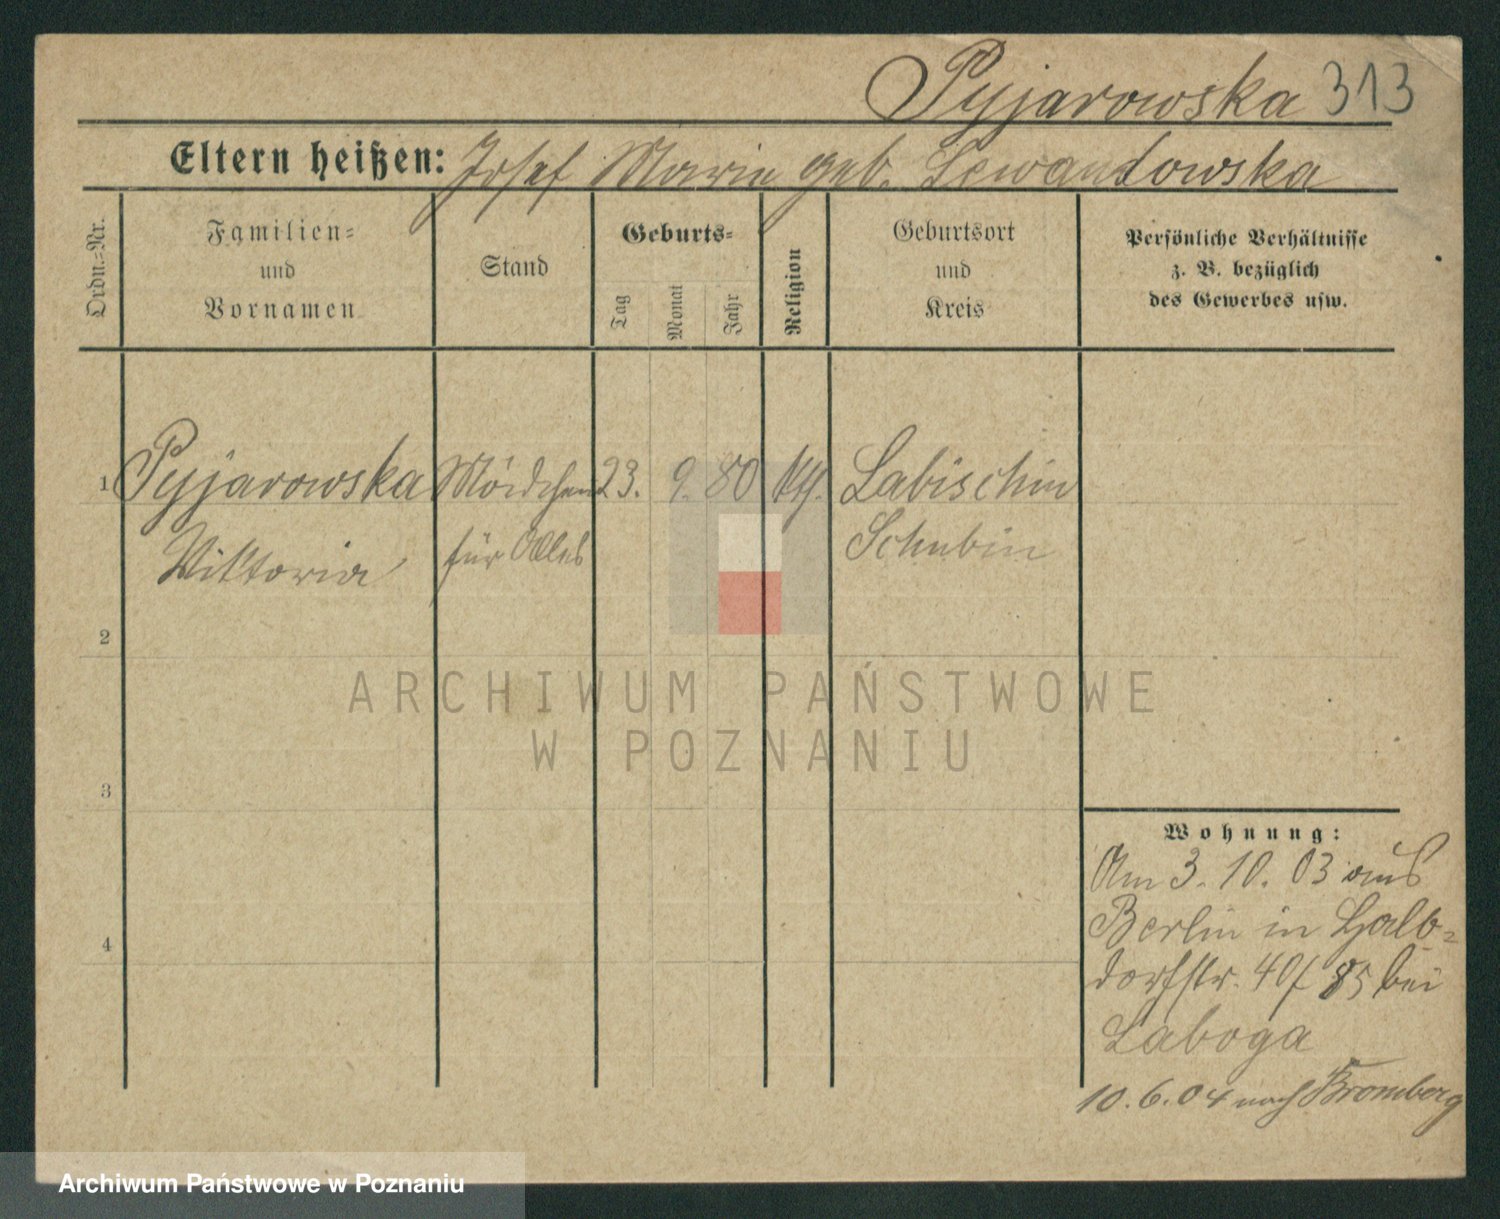 Pyjarowska 313
Eltern heißen: Josef Marie geb. Lewandowska
Ordn.-Nr.
Familien-
und
Vornamen
Stand
Geburts-
Tag
Monat
Jahr
Religion
Geburtsort
und
Kreis
Persönliche Verhältnisse
z. B. bezüglich
des Gewerbes usw.
1 Pyjarowska Mädchen 23. 9. 80 kth. Labischin
Viktoria für Alles Schubin
2
ARCHIWUM PAŃSTWOWE
W POZNANIU
3
4
Wohnung:
Am 3. 10. 03 aus
Berlin in Halb-
dorfstr. 40/ 85 bei
Laboga
10. 6. 04 nach Bromberg
Archiwum Państwowe w Poznaniu